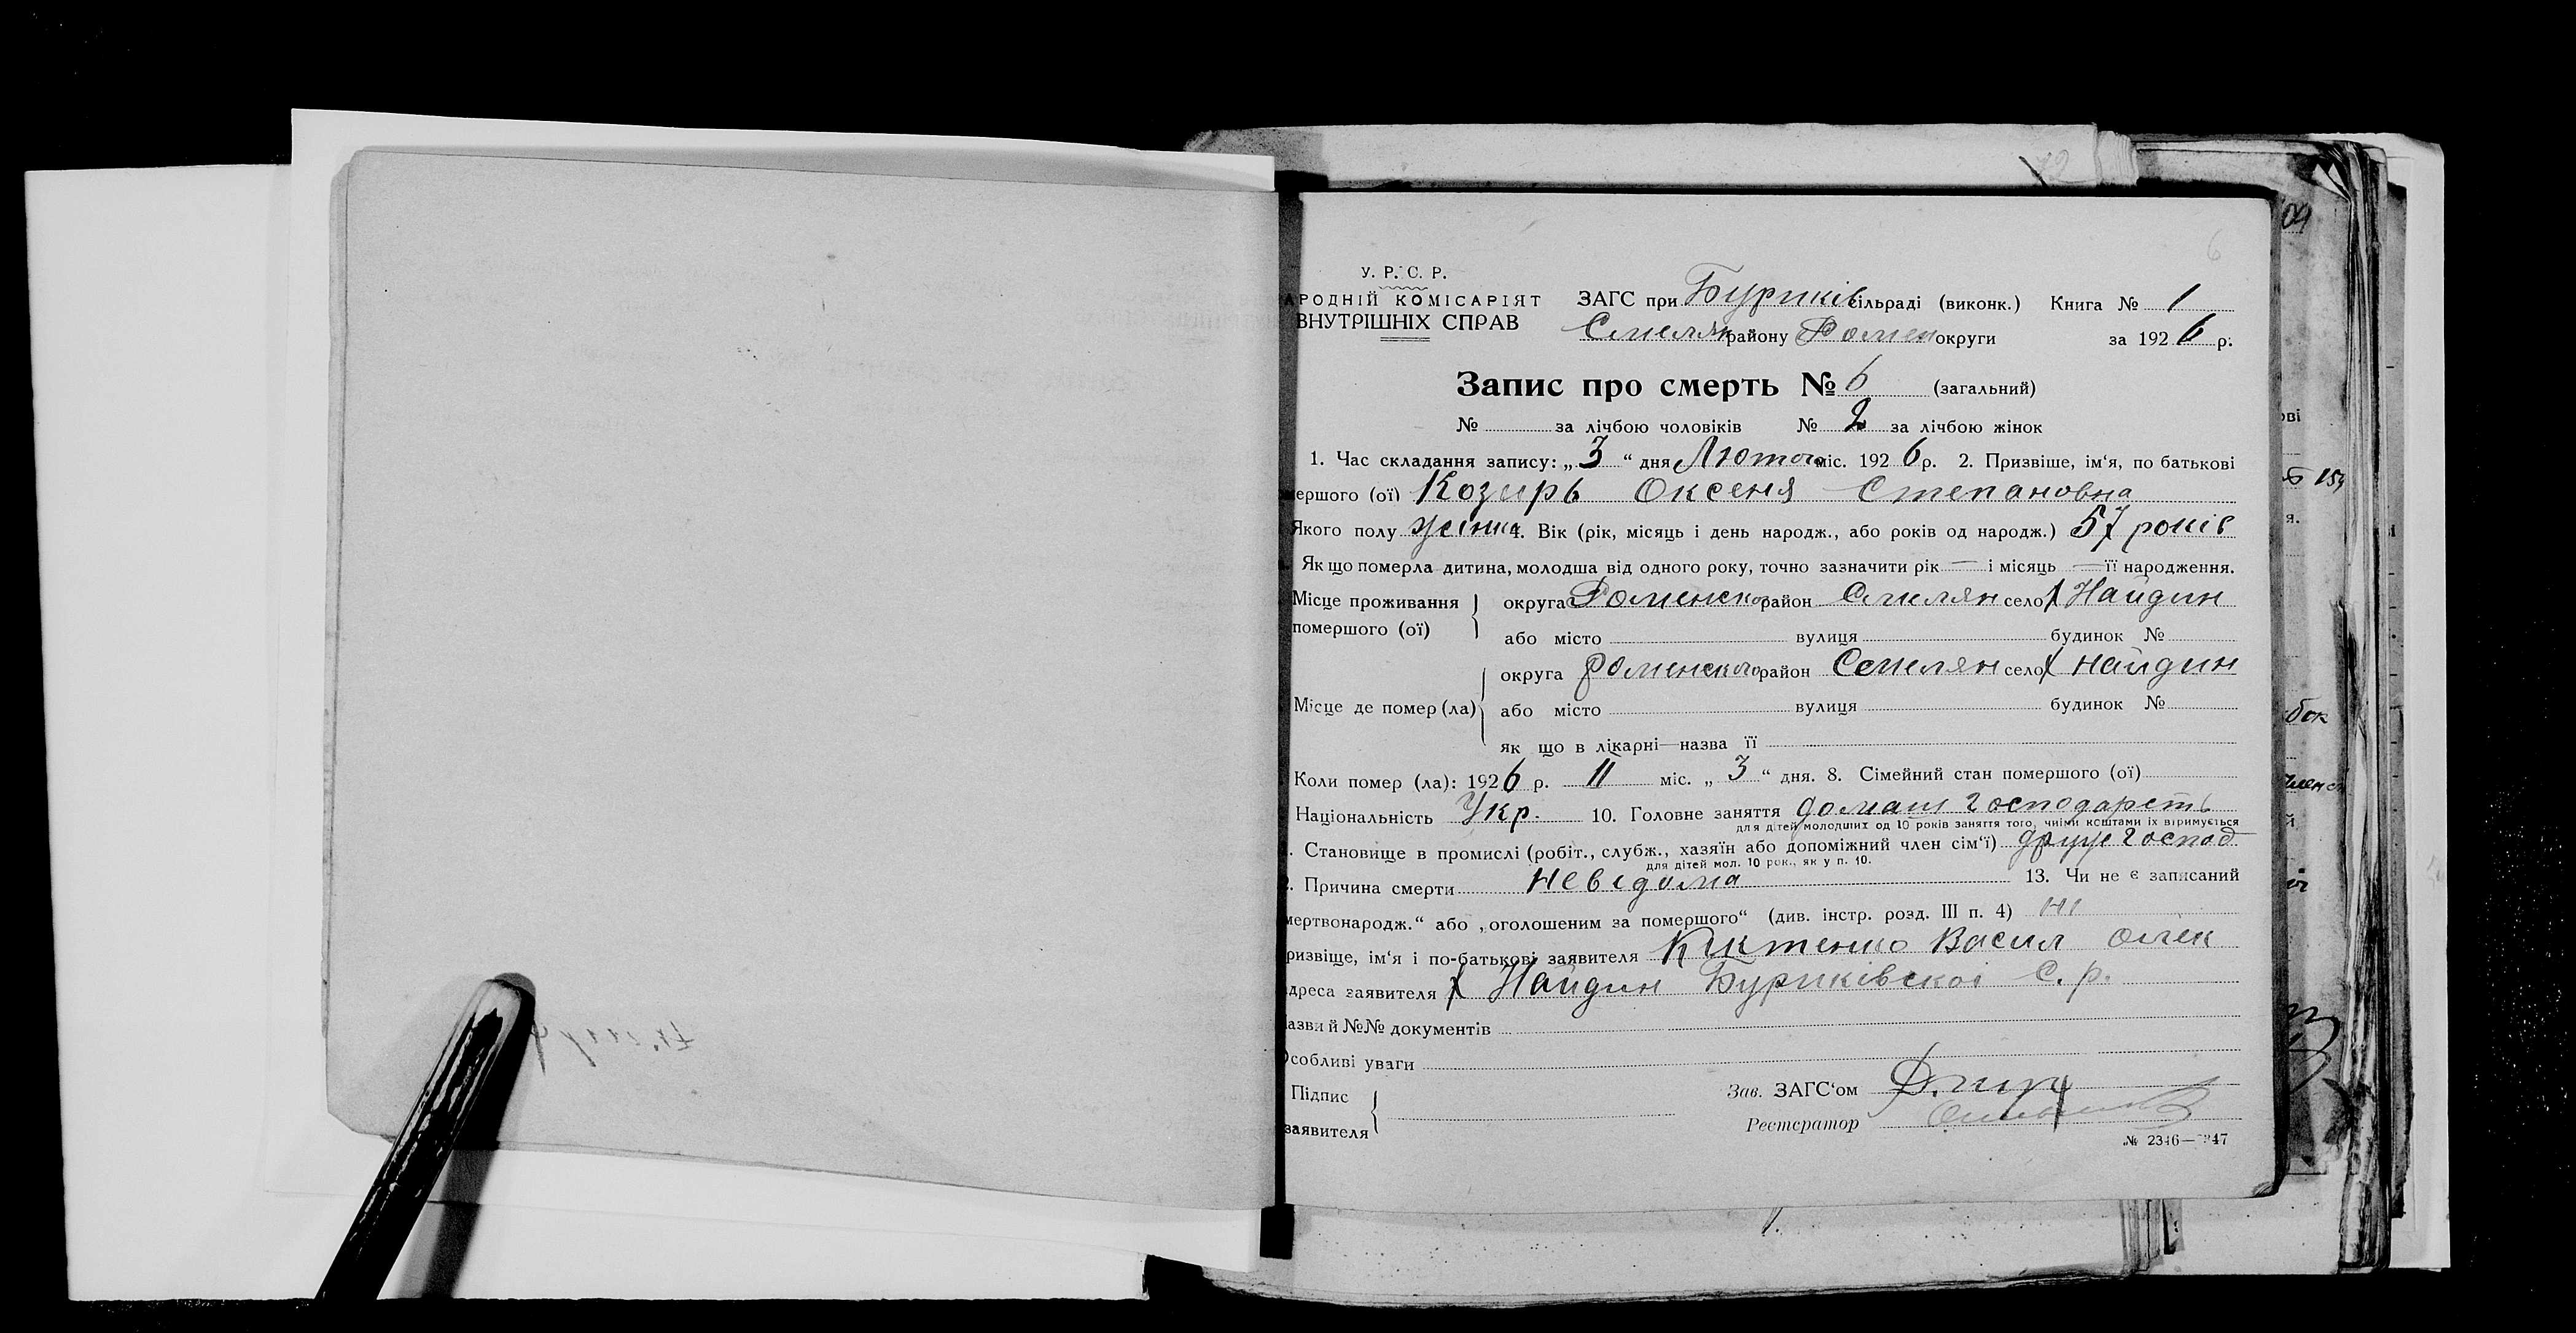 6
У. Р. С. Р.
АРОДНІЙ КОМІСАРІЯТ
ВНУТРІШНІХ СПРАВ
ЗАГС при Буриків сільраді (виконк.) Книга № 1
Смелян району Ромен округи за 1926 р.
Запис про смерть № 6 (загальний)
№ за лічбою чоловіків № 2 за лічбою жінок
1. Час складання запису: „3“ дня Лютого міс. 1926 р. 2. Призвіше, ім‘я, по батькові
мершого (ої) Козирь Оксеня Степановна
Якого полу жінка 4. Вік (рік, місяць і день народж., або років од народж.) 57 років
Як що померла дитина, молодша від одного року, точно зазначити рік — і місяць — її народження.
Місце проживання помершого (ої) округа Роменського район Смелян село х Найдин
або місто вулиця будинок №
Місце де помер (ла) округа Роменського район Семелян село х Найдин
або місто вулиця будинок №
як що в лікарні—назва її
Коли помер (ла): 1926 р. II міс. „3“ дня. 8. Сімейний стан помершого (ої)
Національність Укр. 10. Головне заняття домаш господарсть
для дітей молодших од 10 років заняття того, чиїми коштами їх втримується
. Становище в промислі (робіт., служб., хазяїн або допоміжний член сім‘ї) друж господ
для дітей мол. 10 рок., як у п. 10.
2. Причина смерти Невідома 13. Чи не є записаний
мертвонародж.“ або „оголошеним за помершого“ (див. інстр. розд. III п. 4) ні
ризвіще, ім‘я і по-батькові заявителя Кіктенко Васил Олек
дреса заявителя х Найдин Буриківскоі С. р.
азви й №№ документів
Особливі уваги
Підпис заявителя
Зав. ЗАГС‘ом
Реєстратор
№ 2346—